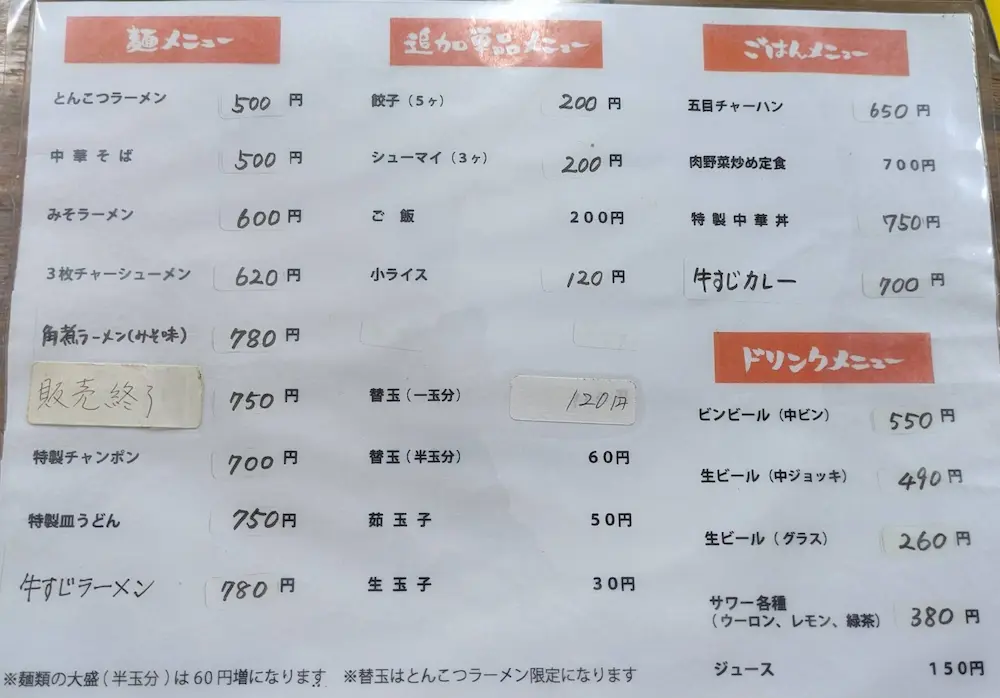 麺メニュー
とんこつラーメン 500 円
中華そば 500 円
みそラーメン 600 円
3枚チャーシューメン 620 円
角煮ラーメン(みそ味) 780 円
販売終了 750 円
特製チャンポン 700 円
特製皿うどん 750円
牛すじラーメン 780 円
追加単品メニュー
餃子(5ヶ) 200 円
シューマイ(3ヶ) 200 円
ご飯 200円
小ライス 120 円
替玉(一玉分) 120円
替玉(半玉分) 60円
茹玉子 50円
生玉子 30円
ごはんメニュー
五目チャーハン 650 円
肉野菜炒め定食 700円
特製中華丼 750円
牛すじカレー 700 円
ドリンクメニュー
ビンビール(中ビン) 550 円
生ビール(中ジョッキ) 490 円
生ビール(グラス) 260 円
サワー各種
(ウーロン、レモン、緑茶) 380 円
ジュース 150円
※麺類の大盛(半玉分)は60円増になります ※替玉はとんこつラーメン限定になります